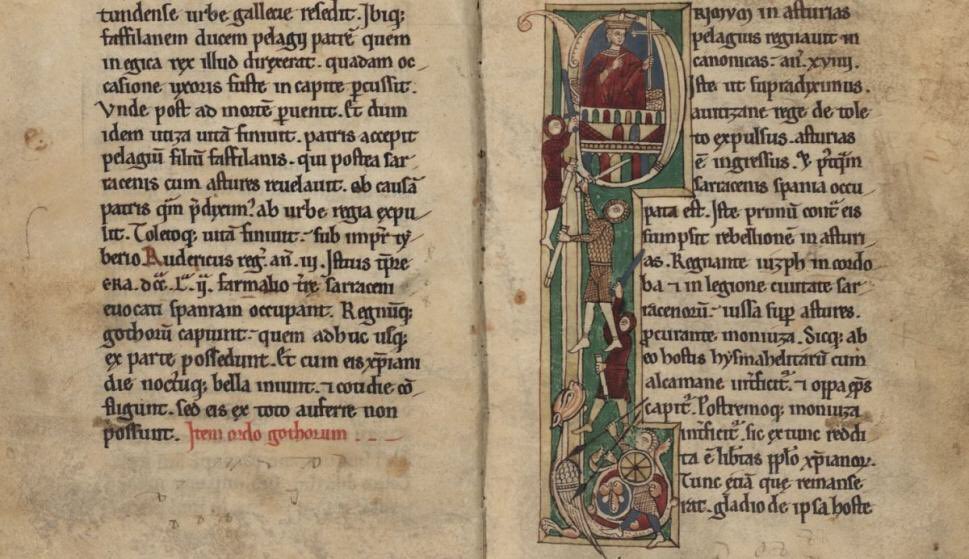 tundense urbe gallecie resedit. Ibiq;
faffilanem ducem pelagij patrē quem
in egica rex illud direxerat. quadam oc
casione uxoris fuste in capite p̄cussit.
Vnde post ad mortē p̄uenit. Et dum
idem uitiza uitā finiuit. patris accepit
pelagiū filiū faffilanis. qui postea sar
racenis cum astures reuelauit. ob causā
patris qm̄ p̄diximꝰ ab urbe regia expu
lit. Toletoq; uitā finiuit. sub imp̄r ty
berio. Rudericus reg̃. añ. iii. Istius tp̄re
era. dcc. Lª. ij. farmalio tr̄e sarraceni
euocati spaniam occupant. Regnūq;
gothorū capiunt. quem adhuc usq;
ex parte possedunt. Et cum eis xp̄iani
die noctuq; bella iniunt. ⁊ cotidie cō
fligunt. sed eis ex toto auferre non
possunt. Item ordo gothorum
PRIMUM in asturias
pelagius regnauit in
canonicas. añ. xviiii.
Iste ut supradiximus.
a uitizane rege de tole
to expulsus. asturias
ē ingressus. Et p̄tqm̄
sarracenis spania occu
pata est. Iste primū cont̄ eis
sumpsit rebellionē in asturi
as. Regnante iuzph in cordo
ba ⁊ in legione ciuitate sar
racenorū. iussa sup̄ astures.
p̄curante monniza. Sicq; ab
eo hostis hysmahelitarū cum
alcamane int̄ficit̄. ⁊ oppa ep̄s
capit̄. Postremoq; monniza
int̄ficit̄. sic ex tunc reddi
ta ē lib̄tas pplo xp̄ianor.
Tunc etiā que remanse
rat. gladio de ipsa hoste